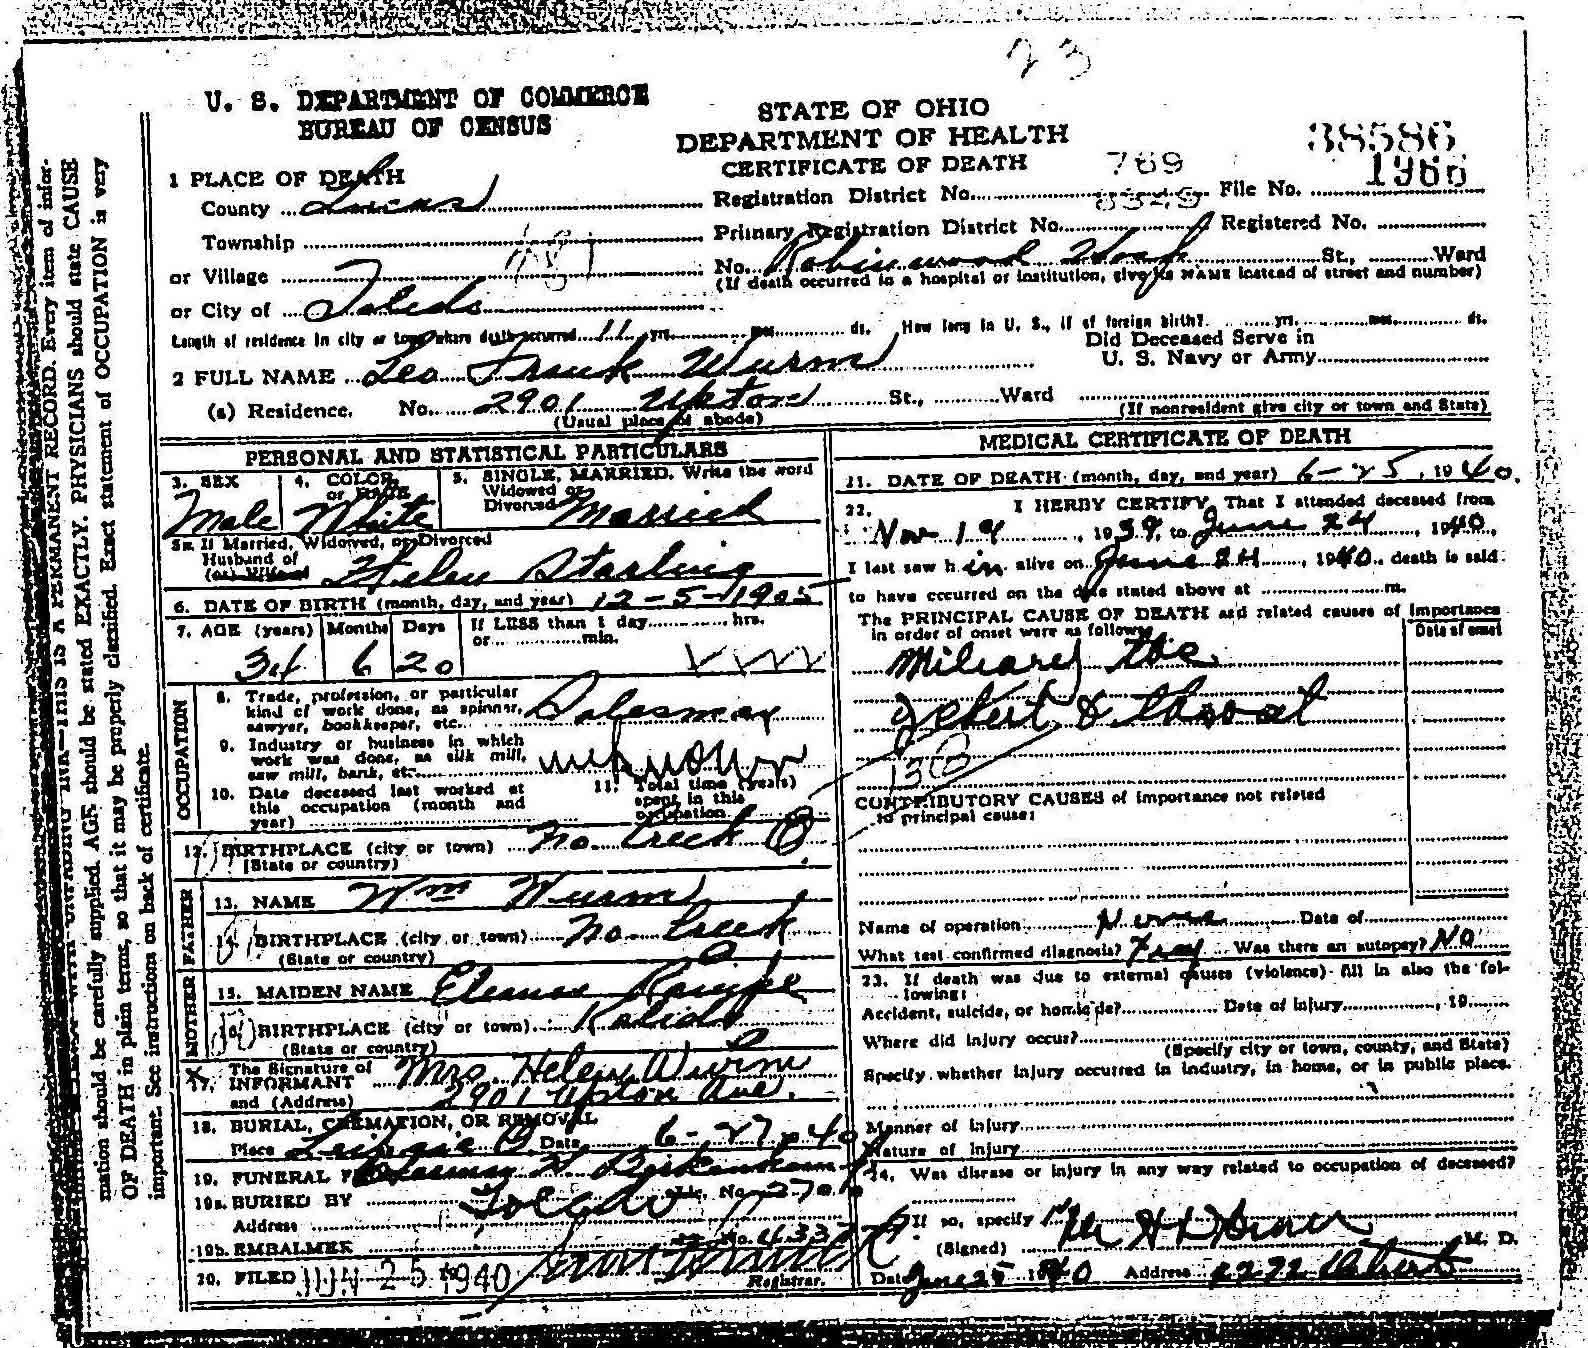 23
U. S. DEPARTMENT OF COMMERCE
BUREAU OF CENSUS
STATE OF OHIO
DEPARTMENT OF HEALTH
CERTIFICATE OF DEATH
38586
1 PLACE OF DEATH
County Lucas
Township
or Village
or City of Toledo
Registration District No. 769 File No. 1966
Primary Registration District No. Registered No.
No. Robinwood Hosp St., Ward
(If death occurred in a hospital or institution, give its NAME instead of street and number)
Length of residence in city or town where death occurred 11 yrs. mos. ds. How long in U. S., if of foreign birth? yrs. mos. ds.
Did Deceased Serve in
U. S. Navy or Army
2 FULL NAME Leo Frank Wurm
(a) Residence. No. 2901 Upton St., Ward
(Usual place of abode) (If nonresident give city or town and State)
PERSONAL AND STATISTICAL PARTICULARS
3. SEX Male
4. COLOR or RACE White
5. SINGLE, MARRIED, Write the word
Widowed or
Divorced Married
5a. If Married, Widowed, or Divorced
Husband of
(or) Wife of Helen Starling
6. DATE OF BIRTH (month, day, and year) 12-5-1905
7. AGE (years) Months Days If LESS than 1 day hrs.
or min.
34 6 20
OCCUPATION
8. Trade, profession, or particular
kind of work done, as spinner,
sawyer, bookkeeper, etc. Salesman
9. Industry or business in which
work was done, as silk mill,
saw mill, bank, etc. unknown
10. Date deceased last worked at
this occupation (month and
year)
11. Total time (years)
spent in this
occupation
12. BIRTHPLACE (city or town) No. Creek O.
(State or country)
FATHER
13. NAME Wm Wurm
14. BIRTHPLACE (city or town) No. Creek
(State or country) O
MOTHER
15. MAIDEN NAME Eleanor
16. BIRTHPLACE (city or town) Kalida
(State or country) O
17. The Signature of
INFORMANT Mrs. Helen Wurm
and (Address) 2901 Upton Ave.
18. BURIAL, CREMATION, OR REMOVAL
Place Leipsic O. Date 6-27-40
19. FUNERAL
19a. BURIED BY Lic. No. 270
Address Toledo
19b. EMBALMER No. 433
20. FILED JUN 25 1940
Registrar.
MEDICAL CERTIFICATE OF DEATH
21. DATE OF DEATH (month, day, and year) 6-25, 1940.
22. I HERBY CERTIFY, That I attended deceased from
Nov 19, 1939, to June 24, 1940,
I last saw h im alive on June 24, 1940, death is said
to have occurred on the date stated above at m.
The PRINCIPAL CAUSE OF DEATH and related causes of Importance
in order of onset were as follows: Date of onset
Miliary tbc
of chest & throat
13
CONTRIBUTORY CAUSES of importance not related
to principal cause:
Name of operation None Date of
What test confirmed diagnosis? Xray Was there an autopsy? NO
23. If death was due to external causes (violence) fill in also the fol-
lowing:
Accident, suicide, or homicide? Date of injury , 19
Where did injury occur?
(Specify city or town, county, and State)
Specify whether injury occurred in industry, in home, or in public place.
Manner of injury
Nature of injury
24. Was disease or injury in any way related to occupation of deceased?
If so, specify
(Signed) M. D.
Date June 25 1940 Address
mation should be carefully supplied. AGE should be stated EXACTLY. PHYSICIANS should state CAUSE
OF DEATH in plain terms, so that it may be properly classified. Exact statement of OCCUPATION is very
important. See instructions on back of certificate.
THIS IS A PERMANENT RECORD. Every item of infor-